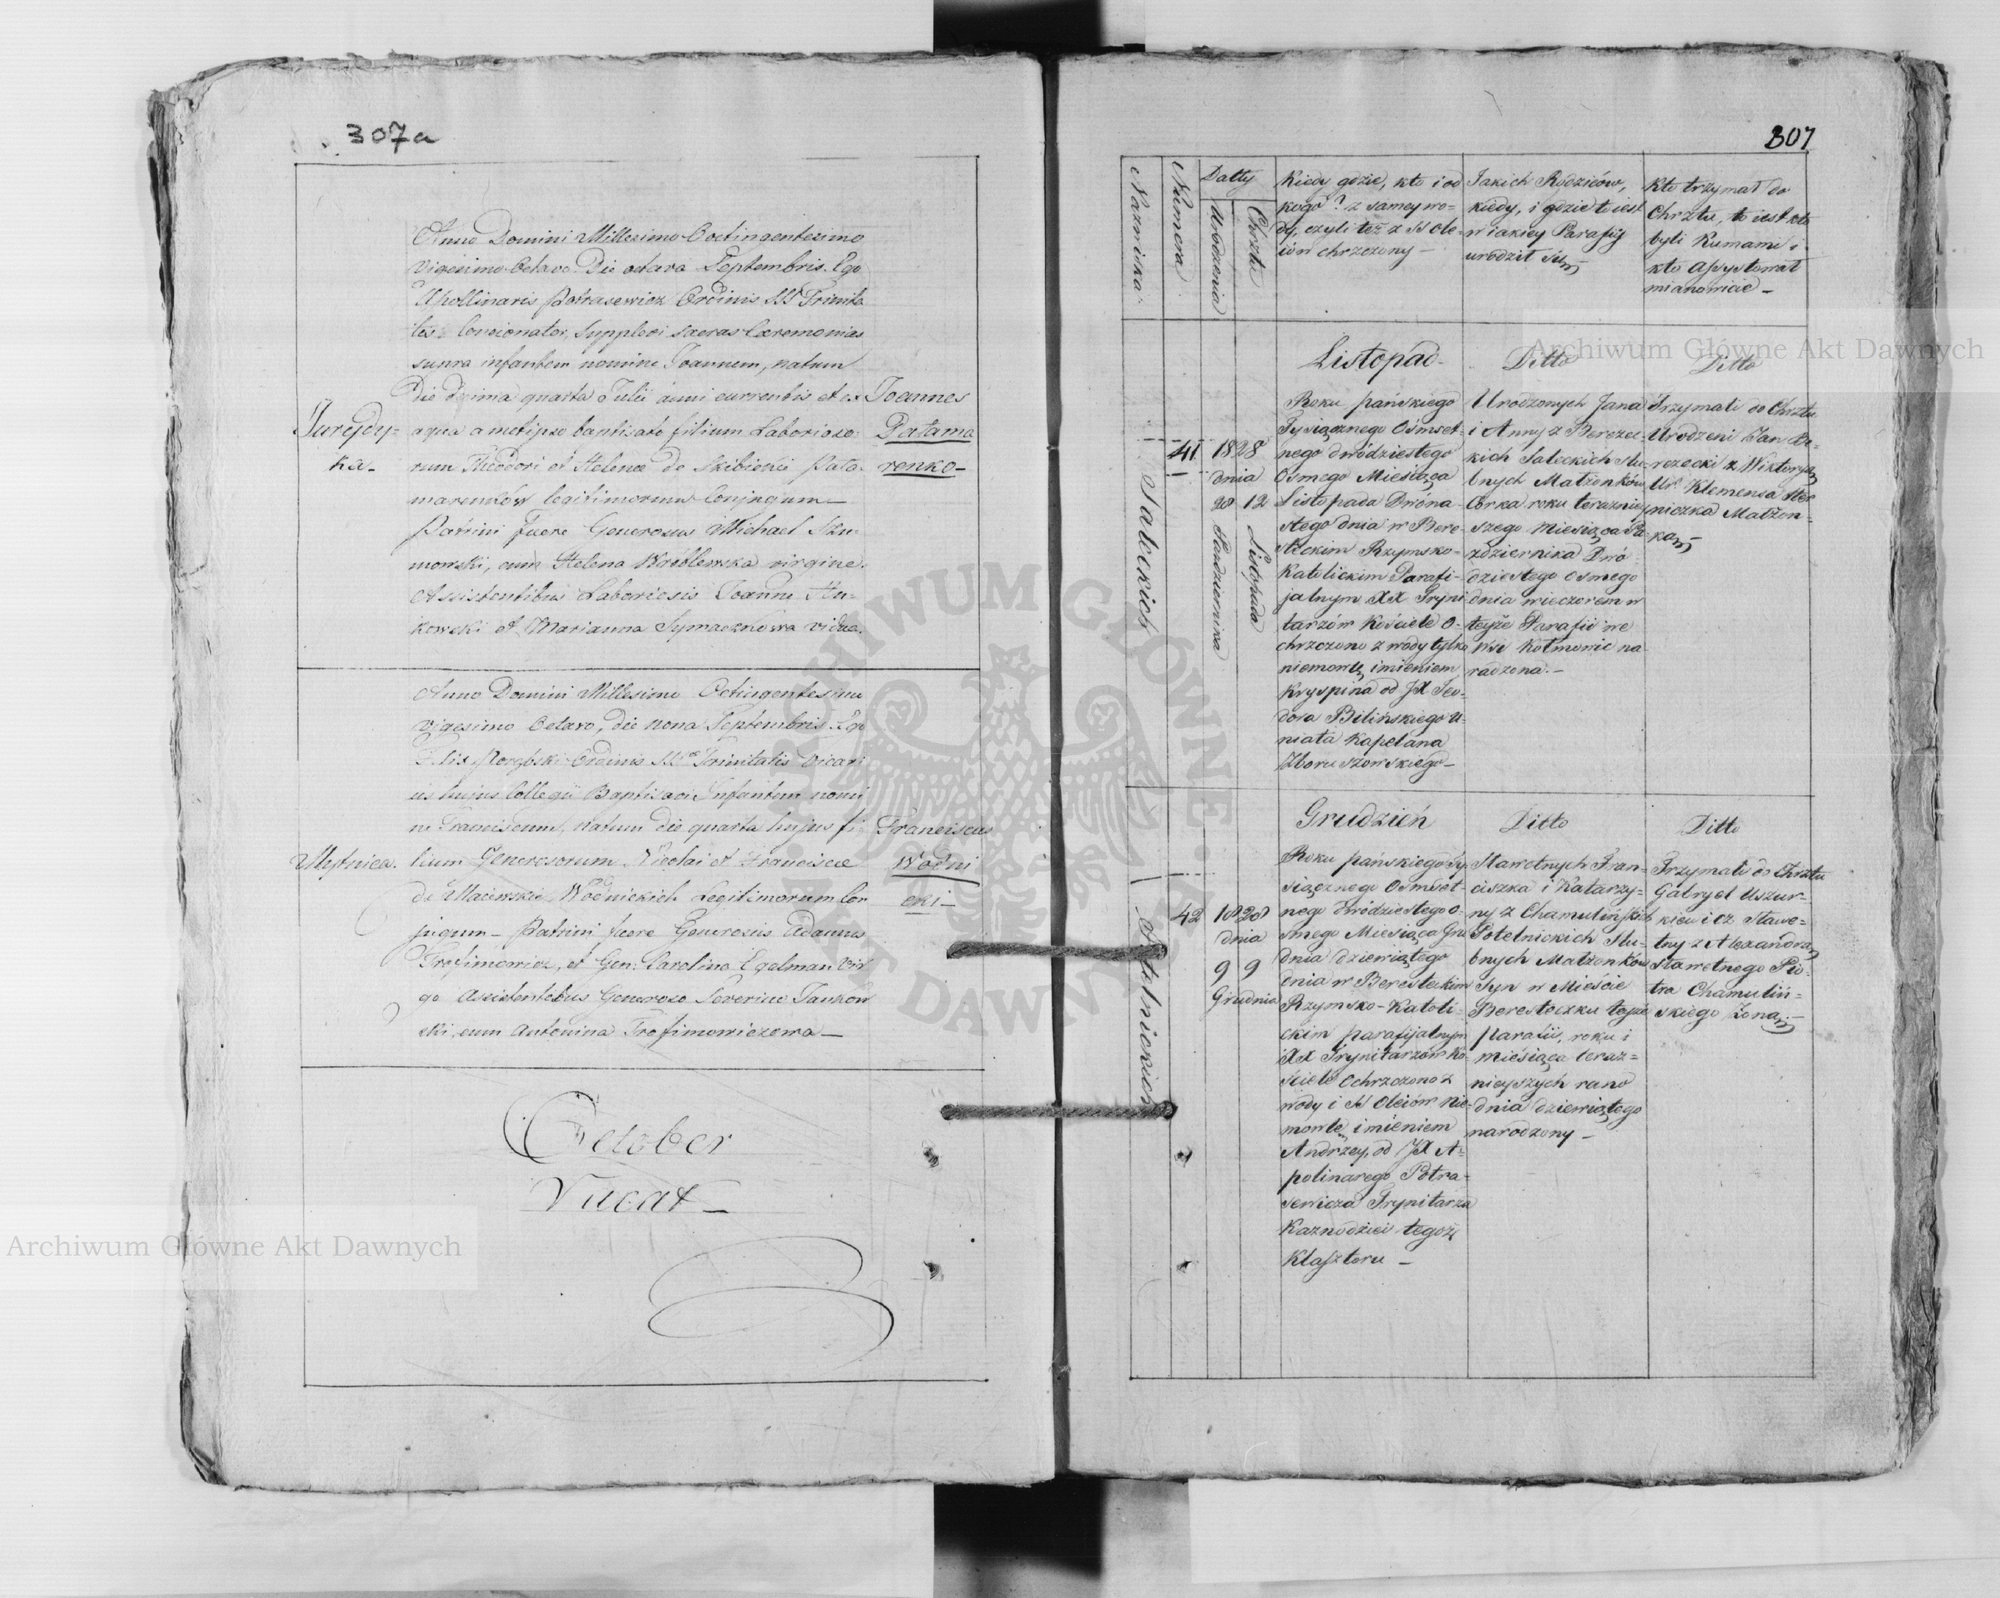 307a
Anno Domini Millesimo Octingentesimo
Vigesimo Octavo Die octava Septembris. Ego
Apollinaris Potrasewicz Ordinis SSS Trinita
tis Concionator, Supplevi sacras Cæremonias
supra infantem nomine Joannem, natum
Die decima quarta Julii anni currentis et ex
aqua a me baptisato filium Laborioso
rum Theodori et Helenæ de Skibickie Pata
legitimorum Conjugum —
Patrini fuere Generosus Michael
mowski, cum Helena Wroblewska virgine.
Assistentibus Laboriosis Joanne Hu-
kowski et Marianna vidua.
Jurejdy=
ka.
Joannes
Patama
renko—
Anno Domini Millesimo Octingentesimo
vigesimo Octavo, die nona Septembris. Ego
Felix Ordinis SSS Trinitatis Vicari
us hujus Collegii Baptisavi Infantem nomi
ne Franciscum, natum die quarta hujus fi
lium Generosorum Nicolai et Franciscæ
de Wodnickich Legitimorum Con
jugum — Patrini fuere Generosus Adamus
Trofimowicz, et Gen: Carolina Egelman Vir
go Assistentibus Generoso Severino Jankow
ski, cum Antonina Trofimowiczowa —
Mytnica.
Franciscus
Wodni
cki —
October
Vacat —
307
Nazwiska
Numera
Datty
Urodzenia
Chrztu
Kiedy gdzie, kto i od
kogo? z samey wo-
dy, czyli też z SS Ole-
iów chrzczony —
Jakich Rodziców,
kiedy, i gdzie to iest
w iakiey Parafij
urodził się
Kto trzymał do
Chrztu, to iest kto
byli Kumami i
kto Assystował
mianowicie —
Listopad
Ditto
Ditto
Sałeckich
41
1828
dnia
28 12
Pazdziernika
Listopada
Roku pańskiego
Tysiącznego Ośmset-
nego dwódziestego
Osmego Miesiąca
Listopada Dwóna-
stego dnia w Bere-
steckim Rzymsko-
Katolickim Parafi-
jalnym XX Tryni
tarzów Kościele O-
chrzczono z wody tylko
niemowlę imieniem
Kryspina od JX Teo-
dora Bilińskiego u-
niata Kapelana
Zboruszowskiego —
Urodzonych Jana
i Anny z Berezec-
kich Sałeckich Slu-
bnych Małżonków
Corka roku teraznieỳ
szego miesiąca Pa-
zdziernika Dwó
dziestego osmego
dnia wieczorem w
teyże Parafii we
Wsi Kołmowie na
radzona. —
Trzymali do Chrztu
Urodzeni Jan Be-
rezecki z Wiktoryą
Ur. Klemensa
Małżon-
ką
Grudzień
Ditto
Ditto
Potelnickich
42
1828
dnia
9 9
Grudnia
Roku pańskiego Ty-
siącznego Ośmset-
nego Dwódziestego O-
smego Miesiąca Gru
dnia dziewiątego
dnia w Beresteckim
Rzymsko-Katoli-
ckim parafijalnym
XX Trynitarzów Ko-
ściele Ochrzczono z
wody i SS Oleiów nie-
mowlę imieniem
Andrzey, od JX A-
polinarego Potra-
sewicza Trynitarza
Kaznodziei tegoż
Klasztoru —
Sławetnych Fran-
ciszka i Katarzy-
ny z Chamulińskich
Potelnickich Slu-
bnych Małżonków
Syn w Mieście
Beresteczku teyże
parafii, roku i
miesiąca teraz-
nieyszych rano
dnia dziewiątego
narodzony —
Trzymali do Chrztu
Gabryel Uszur-
kiewicz Sławe-
tny z Alexandrą
Sławetnego Pio-
tra Chamuliń-
skiego żoną. —
Archiwum Główne Akt Dawnych
Archiwum Główne Akt Dawnych
ARCHIWUM GŁÓWNE AKT DAWNYCH